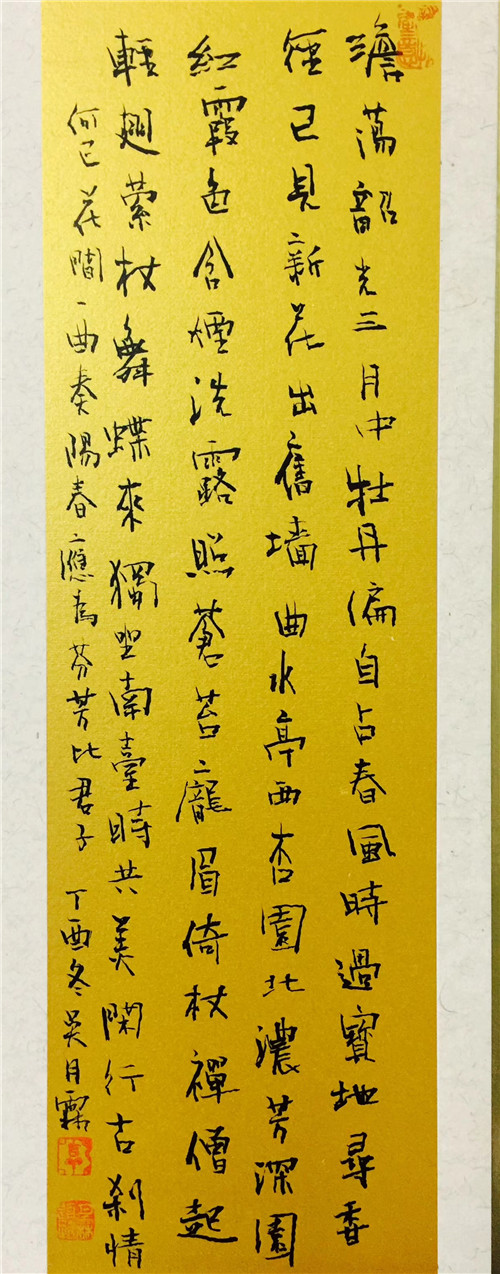 澹蕩韶光三月中牡丹偏自占春風時過寶地尋香
徑已見新花出舊墙曲水亭西杏園北濃芳深園
紅霞色含煙洗露照蒼苔龐眉倚杖禪僧起
輕翅縈杖舞蝶來獨坐南臺時共美閑行古刹情
何已花間一曲奏陽春應為芬芳比君子 丁酉冬吳月霖